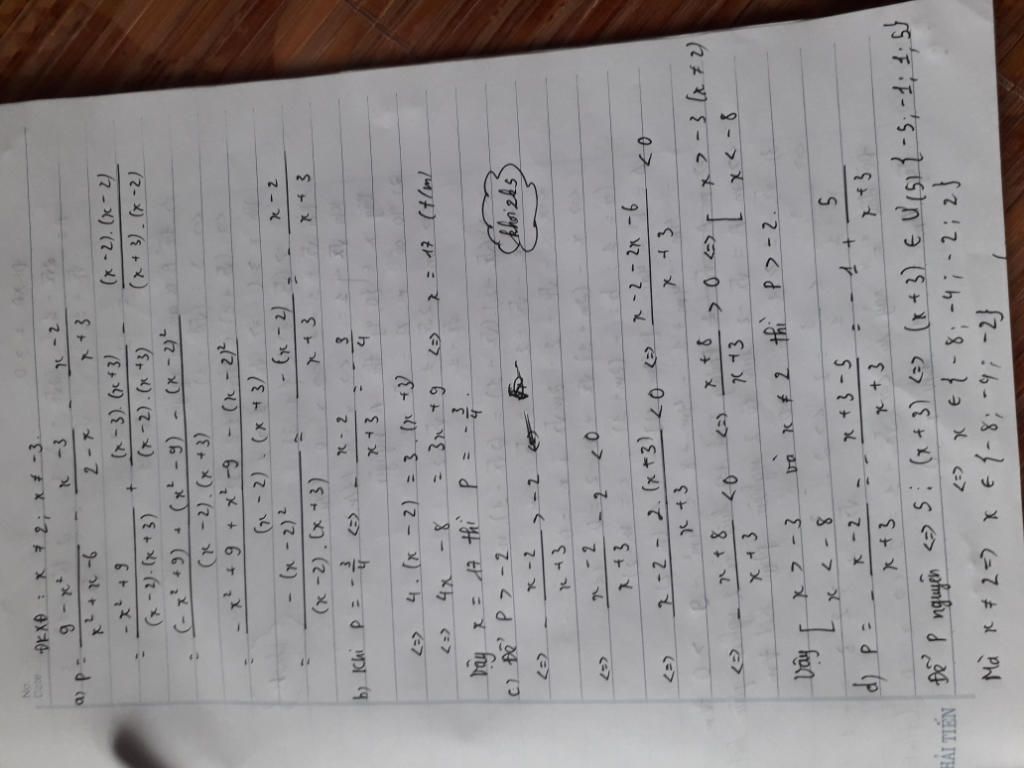 No.
Date
ĐKXĐ : x ≠ 2 ; x ≠ -3.
a) P = \frac{9 - x²}{x² + x - 6} - \frac{x - 3}{2 - x} - \frac{x - 2}{x + 3}
= \frac{-x² + 9}{(x - 2).(x + 3)} + \frac{(x - 3).(x + 3)}{(x - 2).(x + 3)} - \frac{(x - 2).(x - 2)}{(x + 3).(x - 2)}
= \frac{(-x² + 9) + (x² - 9) - (x - 2)²}{(x - 2).(x + 3)}
= \frac{-x² + 9 + x² - 9 - (x - 2)²}{(x - 2).(x + 3)}
= \frac{-(x - 2)²}{(x - 2).(x + 3)} = \frac{-(x - 2)}{x + 3} = - \frac{x - 2}{x + 3}
b) Khi P = -\frac{3}{4} <=> -\frac{x - 2}{x + 3} = -\frac{3}{4}
<=> 4.(x - 2) = 3.(x + 3)
<=> 4x - 8 = 3x + 9 <=> x = 17 (t/m)
Vậy x = 17 thì P = -\frac{3}{4}.
c) Để P > -2
<=> -\frac{x - 2}{x + 3} > -2
<=> \frac{x - 2}{x + 3} - 2 < 0
<=> \frac{x - 2 - 2.(x + 3)}{x + 3} < 0 <=> \frac{x - 2 - 2x - 6}{x + 3} < 0
<=> -\frac{x + 8}{x + 3} < 0 <=> \frac{x + 8}{x + 3} > 0 <=> [ x > -3 (x ≠ 2)
x < -8
Vậy [ x > -3 và x ≠ 2 thì P > -2.
x < -8
d) P = -\frac{x - 2}{x + 3} = -\frac{x + 3 - 5}{x + 3} = -1 + \frac{5}{x + 3}
Để P nguyên <=> 5 ⋮ (x + 3) <=> (x + 3) ∈ Ư(5) {-5; -1; 1; 5}
<=> x ∈ {-8; -4; -2; 2}
Mà x ≠ 2 => x ∈ {-8; -4; -2}
HẢI TIẾN